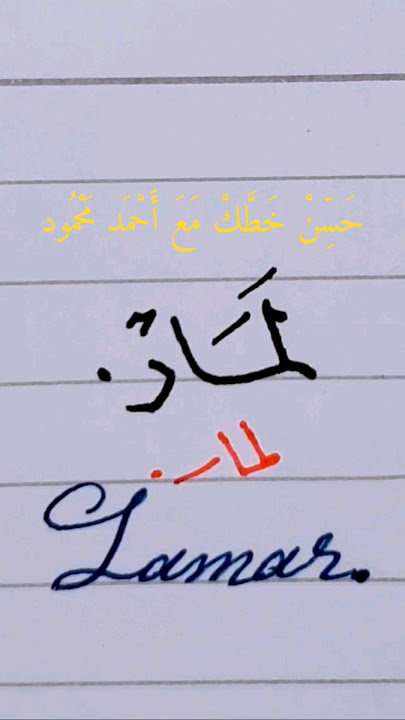 حَسِّنْ خَطَّكْ مَعَ أَحْمَد مَحْمُود
لَمَارٌ.
لمار.
Lamar.